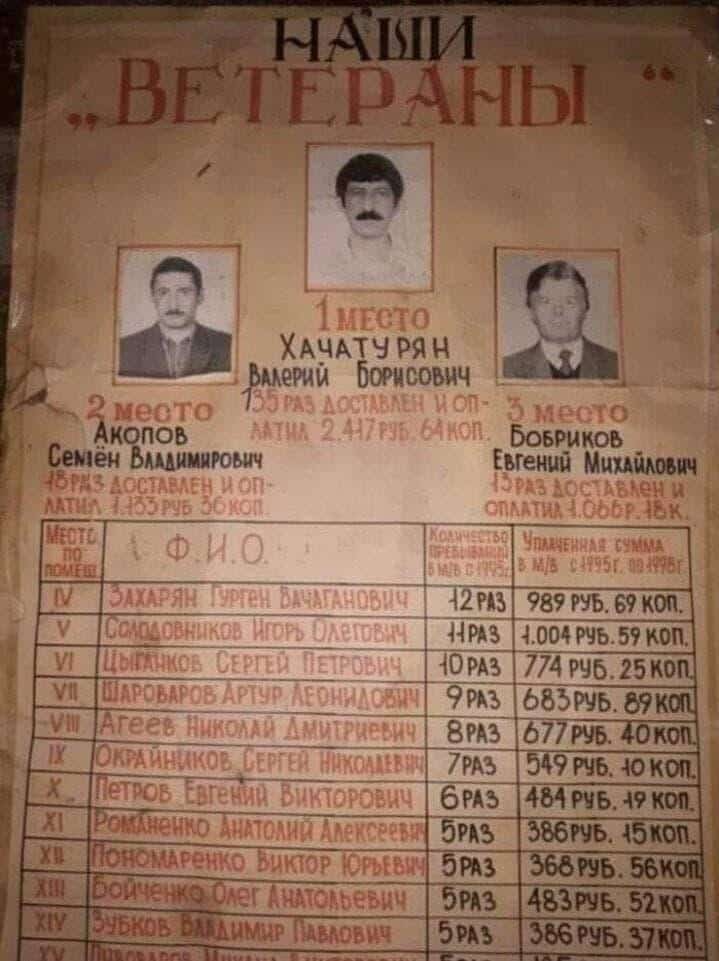 НАШИ
„ВЕТЕРАНЫ“
1 место
ХАЧАТУРЯН
Валерий Борисович
135 РАЗ ДОСТАВЛЕН И ОП-
ЛАТИЛ 2.417 РУБ. 64 КОП.
2 место
АКОПОВ
Семён Владимирович
18 РАЗ ДОСТАВЛЕН И ОП-
ЛАТИЛ 1.133 РУБ 36 КОП.
3 место
БОБРИКОВ
Евгений Михайлович
13 РАЗ ДОСТАВЛЕН И
ОПЛАТИЛ 1.066 Р. 18 К.
МЕСТО ПО ПОМЕЩ. Ф.И.О. КОЛИЧЕСТВО ПРЕБЫВАНИЙ В М/В С 1995г. УПЛАЧЕННАЯ СУММА В М/В С 1995г. ПО 1998г.
IV ЗАХАРЯН ГУРГЕН ВАЧАГАНОВИЧ 12 РАЗ 989 РУБ. 69 КОП.
V СОЛОДОВНИКОВ ИГОРЬ ОЛЕГОВИЧ 11 РАЗ 1.004 РУБ. 59 КОП.
VI ЦЫГАНКОВ СЕРГЕЙ ПЕТРОВИЧ 10 РАЗ 774 РУБ. 25 КОП.
VII ШАРОВАРОВ АРТУР ЛЕОНИДОВИЧ 9 РАЗ 683 РУБ. 89 КОП
VIII АГЕЕВ НИКОЛАЙ ДМИТРИЕВИЧ 8 РАЗ 677 РУБ. 40 КОП.
IX ОКРАЙНИКОВ СЕРГЕЙ НИКОЛАЕВИЧ 7 РАЗ 549 РУБ. 10 КОП.
X ПЕТРОВ ЕВГЕНИЙ ВИКТОРОВИЧ 6 РАЗ 484 РУБ. 19 КОП.
XI РОМАНЕНКО АНАТОЛИЙ АЛЕКСЕЕВИЧ 5 РАЗ 386 РУБ. 15 КОП.
XII ПОНОМАРЕНКО ВИКТОР ЮРЬЕВИЧ 5 РАЗ 368 РУБ. 56 КОП
XIII БОЙЧЕНКО ОЛЕГ АНАТОЛЬЕВИЧ 5 РАЗ 483 РУБ. 52 КОП.
XIV ЗУБКОВ ВЛАДИМИР ПАВЛОВИЧ 5 РАЗ 386 РУБ. 37 КОП.
XV